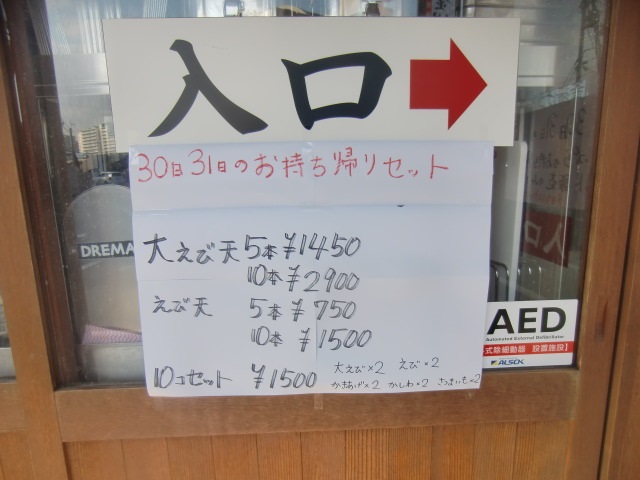 入口
30日31日のお持ち帰りセット
大えび天 5本 ¥1450
10本 ¥2900
えび天 5本 ¥750
10本 ¥1500
10コセット ¥1500 大えび×2 えび×2
かきあげ×2 かしわ×2 さつまいも×2
DREMA
AED
Automated External Defibrillator
式除細動器 設置施設】
ALSOK
入口